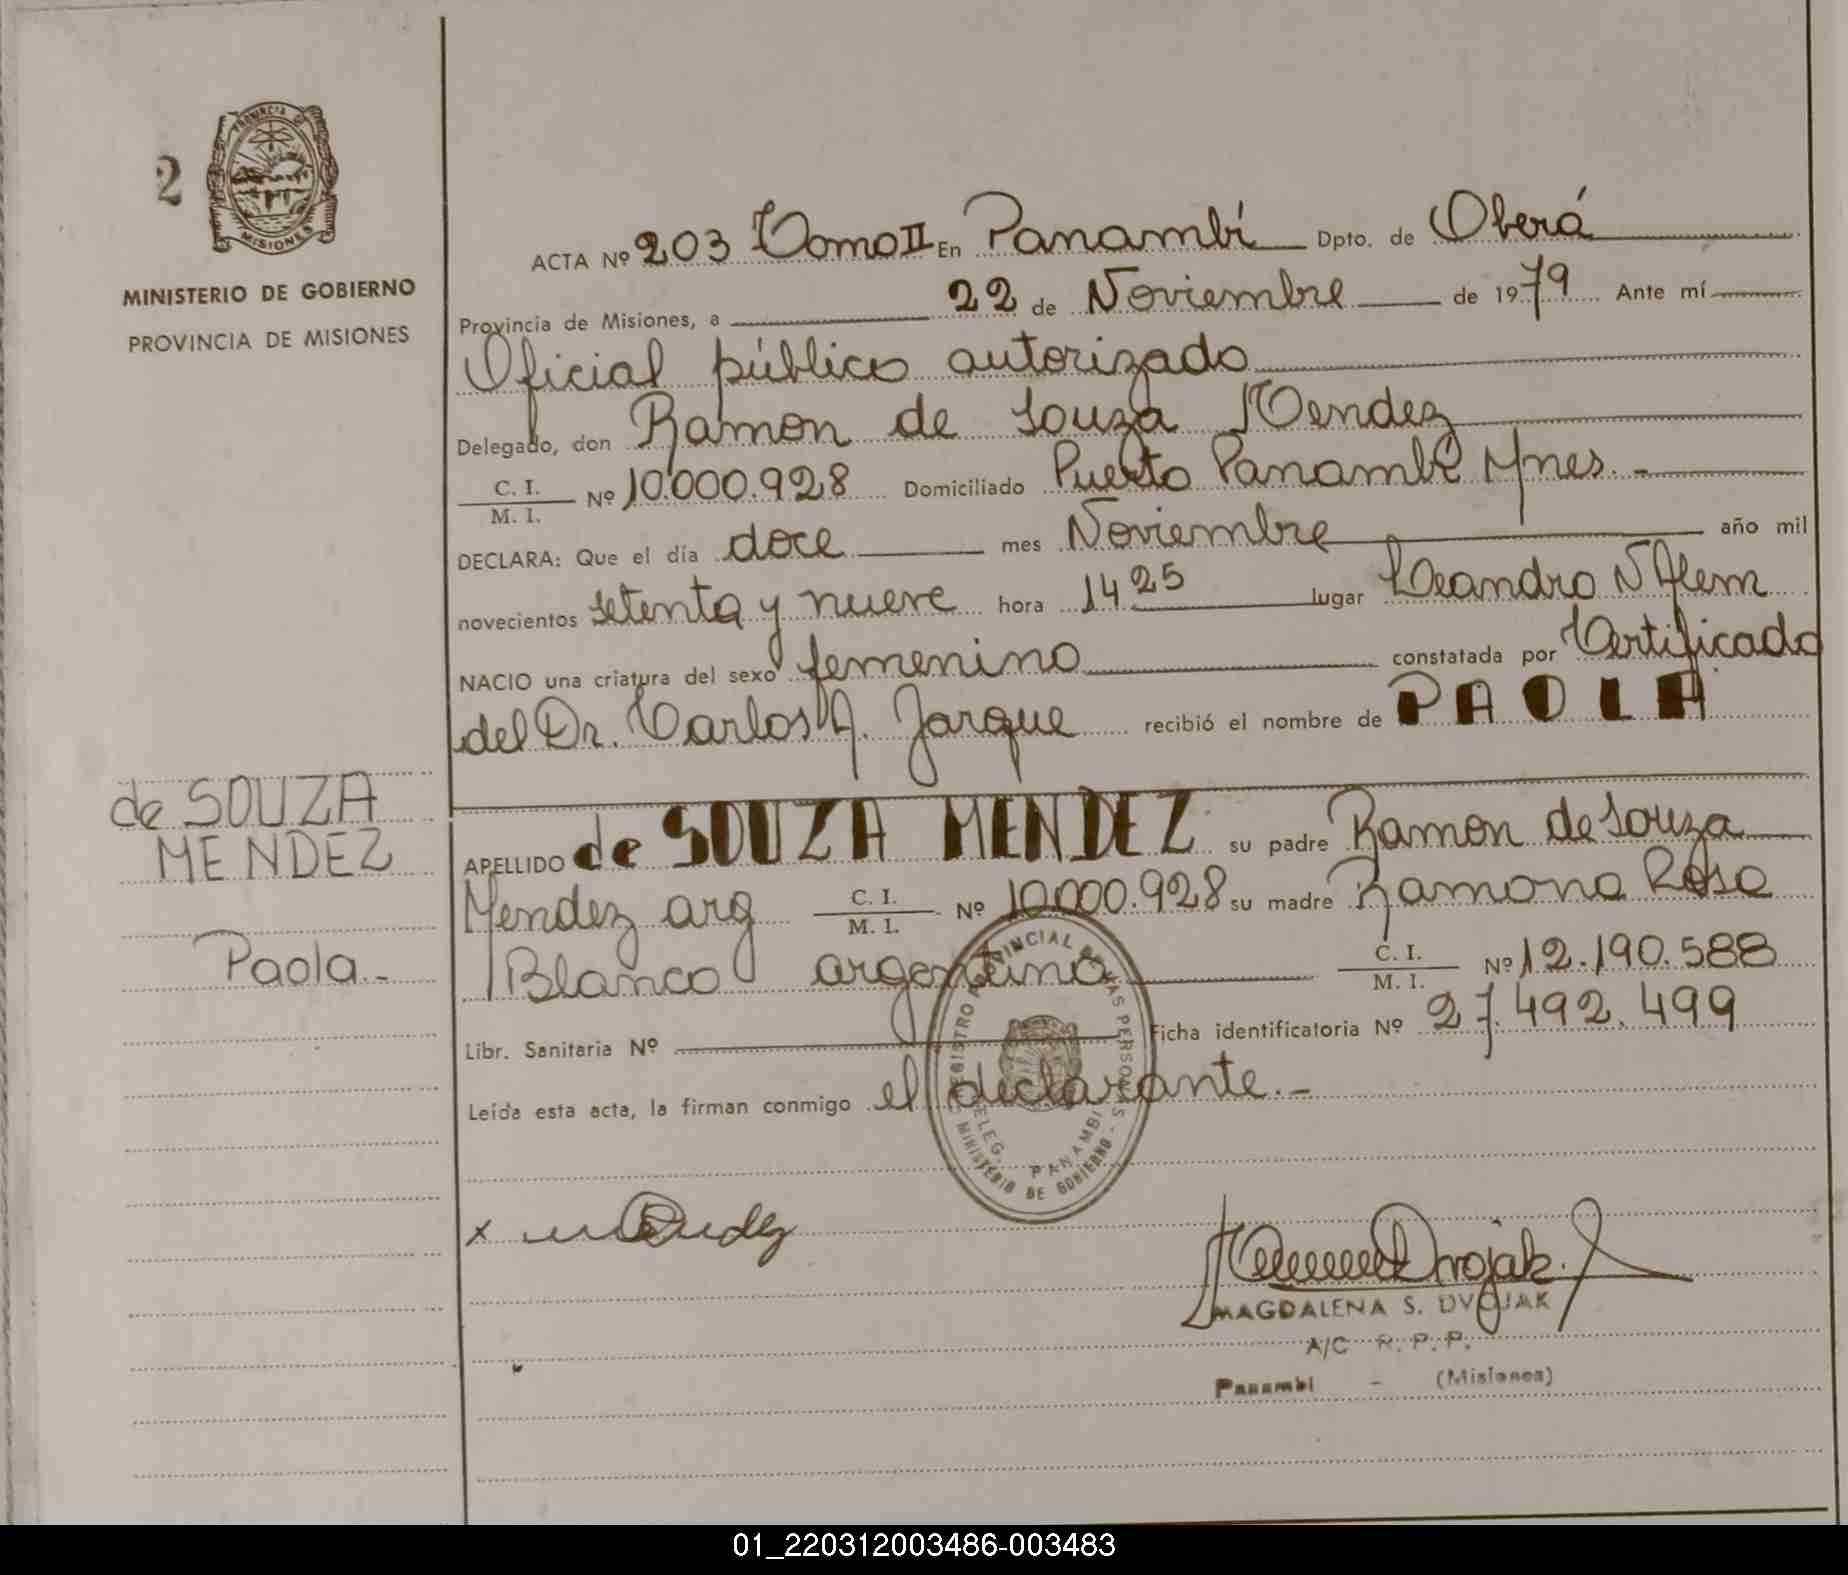 2
PROVINCIA DE
MISIONES
MINISTERIO DE GOBIERNO
PROVINCIA DE MISIONES
ACTA Nº 203 Tomo II En Panambí Dpto. de Oberá
Provincia de Misiones, a 22 de Noviembre de 1979 Ante mí
Oficial público autorizado
Delegado, don Ramon de Souza Mendez
C. I. / M. I. Nº 10.000.928 Domiciliado Puerto Panambí Mnes.-
DECLARA: Que el día doce mes Noviembre año mil
novecientos setenta y nueve hora 14 25 lugar Leandro N Alem
NACIO una criatura del sexo femenino constatada por Certificado
del Dr. Carlos A. Jarque recibió el nombre de PAOLA
de SOUZA
MENDEZ
Paola.-
APELLIDO de SOUZA MENDEZ su padre Ramon de Souza
Mendez arg C. I. / M. I. Nº 10.000.928 su madre Ramona Rosa
Blanco argentina C. I. / M. I. Nº 12.190.588
Libr. Sanitaria Nº Ficha identificatoria Nº 27.492.499
Leída esta acta, la firman conmigo el declarante.-
REGISTRO PROVINCIAL PERSONAS
DELEG. PANAMBI
MINISTERIO DE GOBIERNO
x Mendez
Dvojak
MAGDALENA S. DVOJAK
A/C R. P. P.
Panambí - (Misiones)
01_220312003486-003483